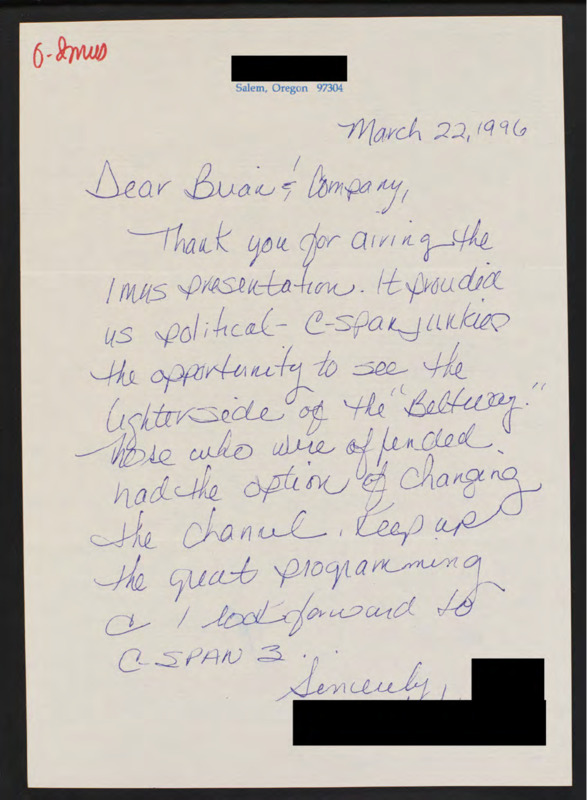 O-Imus
Salem, Oregon 97304
March 22, 1996
Dear Brian & Company,
Thank you for airing the
Imus presentation. It provided
us political - C-SPAN junkies
the opportunity to see the
lighter side of the "Beltway."
Those who were offended
had the option of changing
the channel. Keep up
the great programming
I look forward to
C-SPAN 3.
Sincerely,